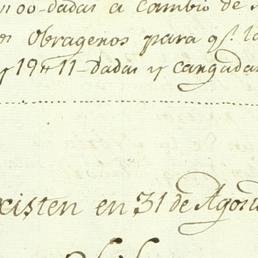 00-dadas a cambio de
Obragenos para qe. la
y 19#11-dadas y cangadas
existen en 31 de Agos